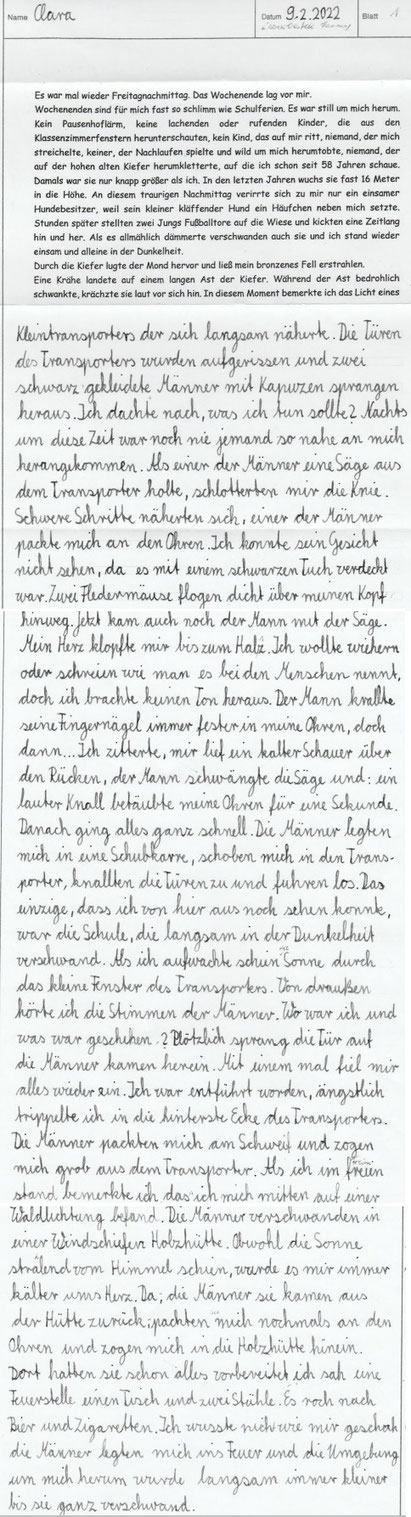 Name Clara Datum 9.2.2022 Blatt 1
Es war mal wieder Freitagnachmittag. Das Wochenende lag vor mir.
Wochenenden sind für mich fast so schlimm wie Schulferien. Es war still um mich herum.
Kein Pausenhoflärm, keine lachenden oder rufenden Kinder, die aus den
Klassenzimmerfenstern herunterschauten, kein Kind, das auf mir ritt, niemand, der mich
streichelte, keiner, der Nachlaufen spielte und wild um mich herumtobte, niemand, der
auf der hohen alten Kiefer herumkletterte, auf die ich schon seit 58 Jahren schaue.
Damals war sie nur knapp größer als ich. In den letzten Jahren wuchs sie fast 16 Meter
in die Höhe. An diesem traurigen Nachmittag verirrte sich zu mir nur ein einsamer
Hundebesitzer, weil sein kleiner kläffender Hund ein Häufchen neben mich setzte.
Stunden später stellten zwei Jungs Fußballtore auf die Wiese und kickten eine Zeitlang
hin und her. Als es allmählich dämmerte verschwanden auch sie und ich stand wieder
einsam und alleine in der Dunkelheit.
Durch die Kiefer lugte der Mond hervor und ließ mein bronzenes Fell erstrahlen.
Eine Krähe landete auf einem langen Ast der Kiefer. Während der Ast bedrohlich
schwankte, krächzte sie laut vor sich hin. In diesem Moment bemerkte ich das Licht eines
Kleintransporters der sich langsam näherte. Die Türen
des Transporters wurden aufgerissen und zwei
schwarz gekleidete Männer mit Kapuzen sprangen
heraus. Ich dachte nach, was ich tun sollte? Nachts
um diese Zeit war noch nie jemand so nahe an mich
herangekommen. Als einer der Männer eine Säge aus
dem Transporter holte, schlotterten mir die Knie.
Schwere Schritte näherten sich, einer der Männer
packte mich an den Ohren. Ich konnte sein Gesicht
nicht sehen, da es mit einem schwarzen Tuch verdeckt
war. Zwei Fledermäuse flogen dicht über meinen Kopf
hinweg. Jetzt kam auch noch der Mann mit der Säge.
Mein Herz klopfte mir bis zum Hals. Ich wollte wiehern
oder schreien wie man es bei den Menschen nennt,
doch ich brachte keinen Ton heraus. Der Mann krallte
seine Fingernägel immer fester in meine Ohren, doch
dann... Ich zitterte, mir lief ein kalter Schauer über
den Rücken, der Mann schwängte die Säge und: ein
lauter Knall betäubte meine Ohren für eine Sekunde.
Danach ging alles ganz schnell. Die Männer legten
mich in eine Schubkarre, schoben mich in den Trans-
porter, knallten die Türen zu und fuhren los. Das
einzige, dass ich von hier aus noch sehen konnte,
war die Schule, die langsam in der Dunkelheit
verschwand. Als ich aufwachte schein die Sonne durch
das kleine Fenster des Transporters. Von draußen
hörte ich die Stimmen der Männer. Wo war ich und
was war geschehen? Plötzlich sprang die Tür auf
die Männer kamen herein. Mit einem mal fiel mir
alles wieder ein. Ich war entführt worden, ängstlich
trippelte ich in die hinterste Ecke des Transporters.
Die Männer packten mich am Schweif und zogen
mich grob aus dem Transporter. Als ich im freien
stand bemerkte ich das ich mich mitten auf einer
Waldlichtung befand. Die Männer verschwanden in
einer Windschiefen Holzhütte. Obwohl die Sonne
strälend vom Himmel schien, wurde es mir immer
kälter ums Herz. Da; die Männer sie kamen aus
der Hütte zurück; packten mich nochmals an den
Ohren und zogen mich in die Holzhütte hinein.
Dort hatten sie schon alles vorbereitet ich sah eine
Feuerstelle einen Tisch und zwei Stühle. Es roch nach
Bier und Zigaretten. Ich wusste nich wie mir geschah
die Männer legten mich ins Feuer und die Umgebung
um mich herum wurde langsam immer kleiner
bis sie ganz verschwand.